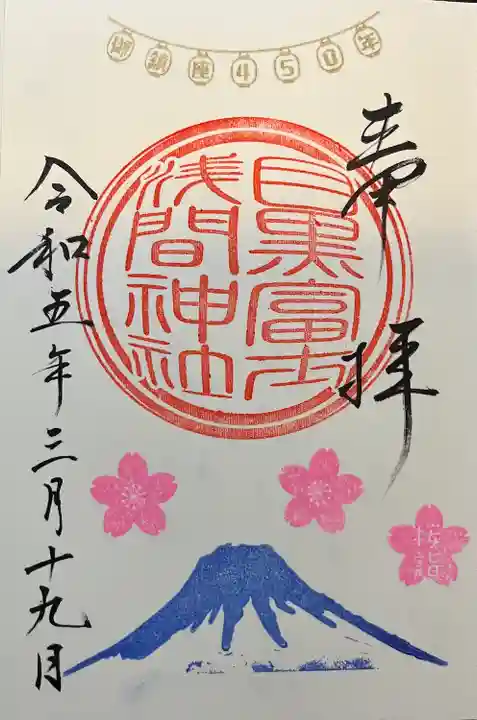 御鎮座450年
奉拝
目黒富士
浅間神社
令和五年三月十九日